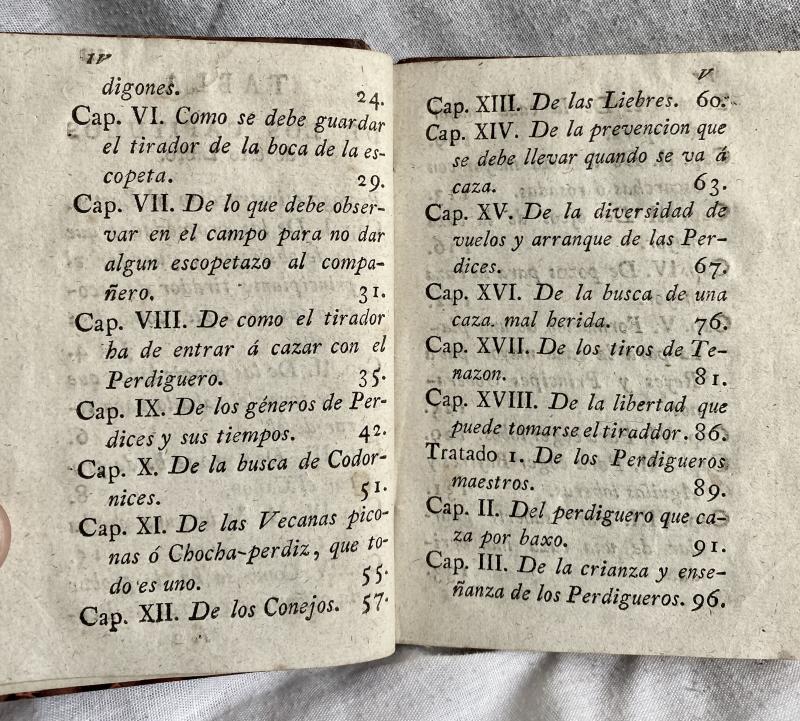 IV
digones. 24.
Cap. VI. Como se debe guardar
el tirador de la boca de la es-
copeta. 29.
Cap. VII. De lo que debe obser-
var en el campo para no dar
algun escopetazo al compa-
ñero. 31.
Cap. VIII. De como el tirador
ha de entrar á cazar con el
Perdiguero. 35.
Cap. IX. De los géneros de Per-
dices y sus tiempos. 42.
Cap. X. De la busca de Codor-
nices. 51.
Cap. XI. De las Vecanas pico-
nas ó Chocha-perdiz, que to-
do es uno. 55.
Cap. XII. De los Conejos. 57.
V
Cap. XIII. De las Liebres. 60.
Cap. XIV. De la prevencion que
se debe llevar quando se va á
caza. 63.
Cap. XV. De la diversidad de
vuelos y arranque de las Per-
dices. 67.
Cap. XVI. De la busca de una
caza mal herida. 76.
Cap. XVII. De los tiros de Te-
nazon. 81.
Cap. XVIII. De la libertad que
puede tomarse el tiraddor. 86.
Tratado 1. De los Perdigueros
maestros. 89.
Cap. II. Del perdiguero que ca-
za por baxo. 91.
Cap. III. De la crianza y ense-
ñanza de los Perdigueros. 96.